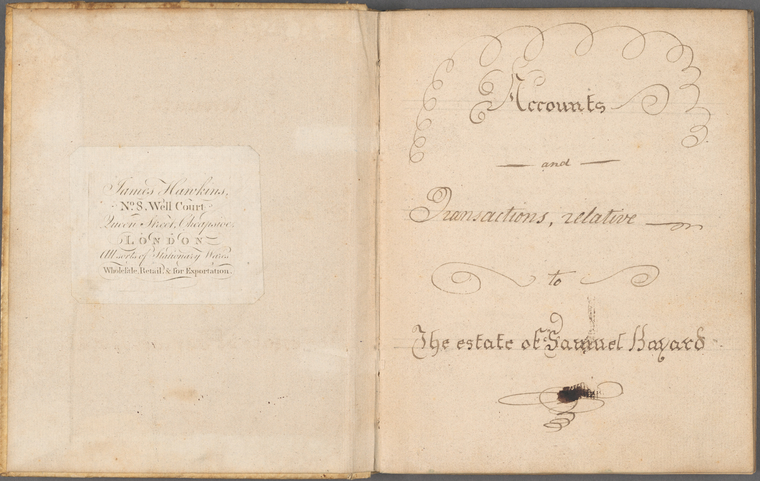 James Hawkins,
No. 8, Well Court
Queen Street, Cheapside,
LONDON
All sorts of Stationary Wares
Wholesale, Retail, & for Exportation.
Accounts
and
Transactions, relative
to
The estate of Samuel Hazard